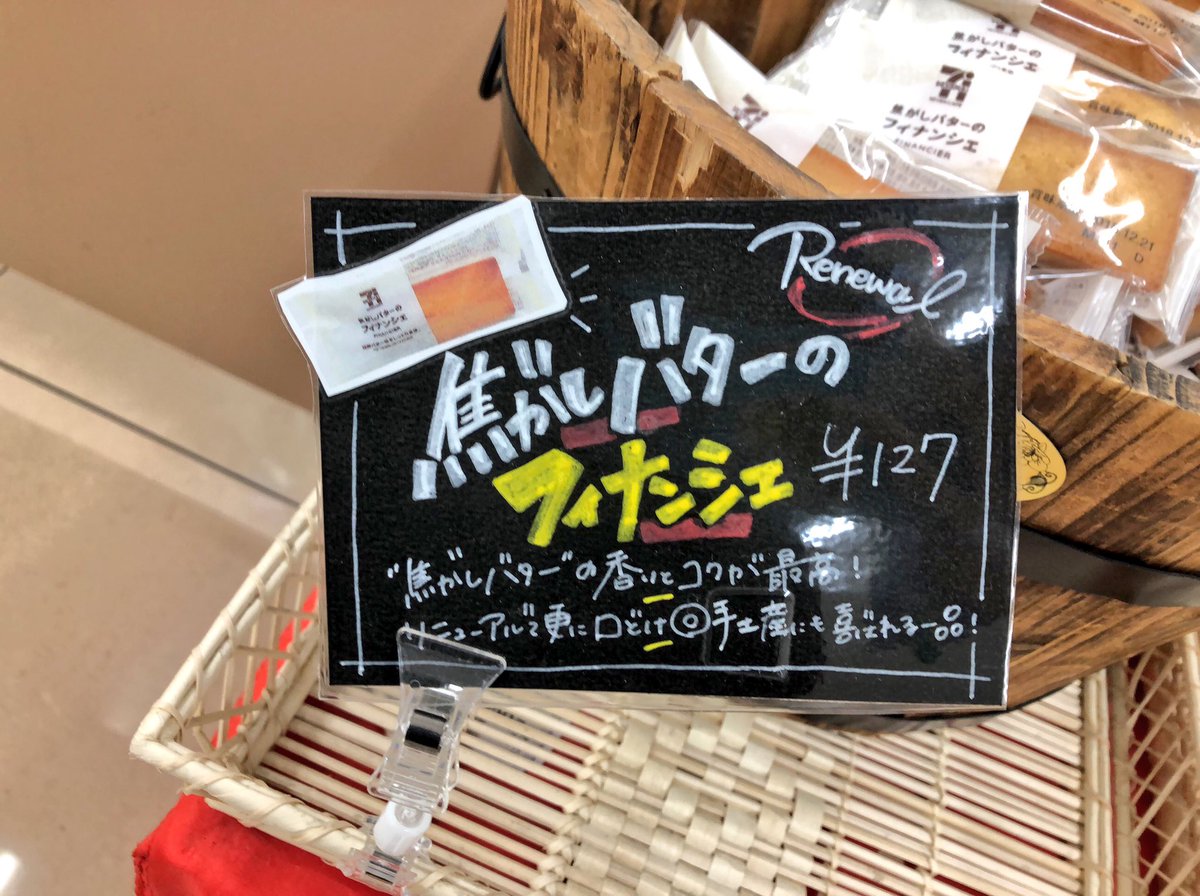 Renewal
焦がしバターの
フィナンシェ
¥127
"焦がしバター"の香りとコクが最高!
リニューアルで更に口どけ◎手土産にも喜ばれる一品!
焦がしバターの
フィナンシェ
FINANCIER
焦がしバターの
フィナンシェ
焦がしバターの
フィナンシェ
FINANCIER
12.21
D